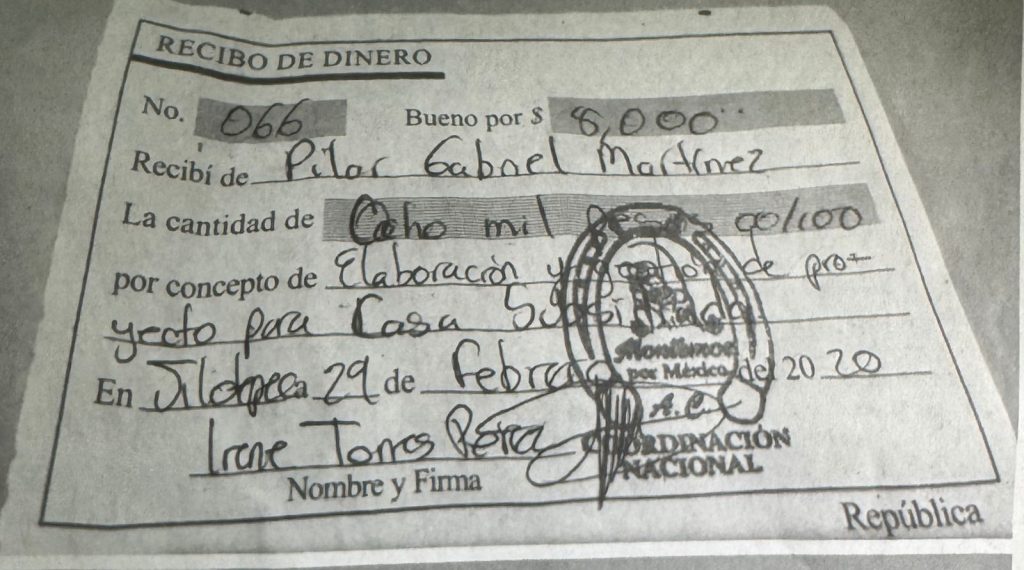 RECIBO DE DINERO
No. 066 Bueno por $ 8,000
Recibí de Pilar Gabriel Martínez
La cantidad de Ocho mil pesos 00/100
por concepto de Elaboración y gestión de pro-
yecto para Casa
En Jilotepec a 29 de febrero del 2020
Irene Torres Pérez
Nombre y Firma
Monlimos
por México
A.C.
COORDINACIÓN
NACIONAL
República